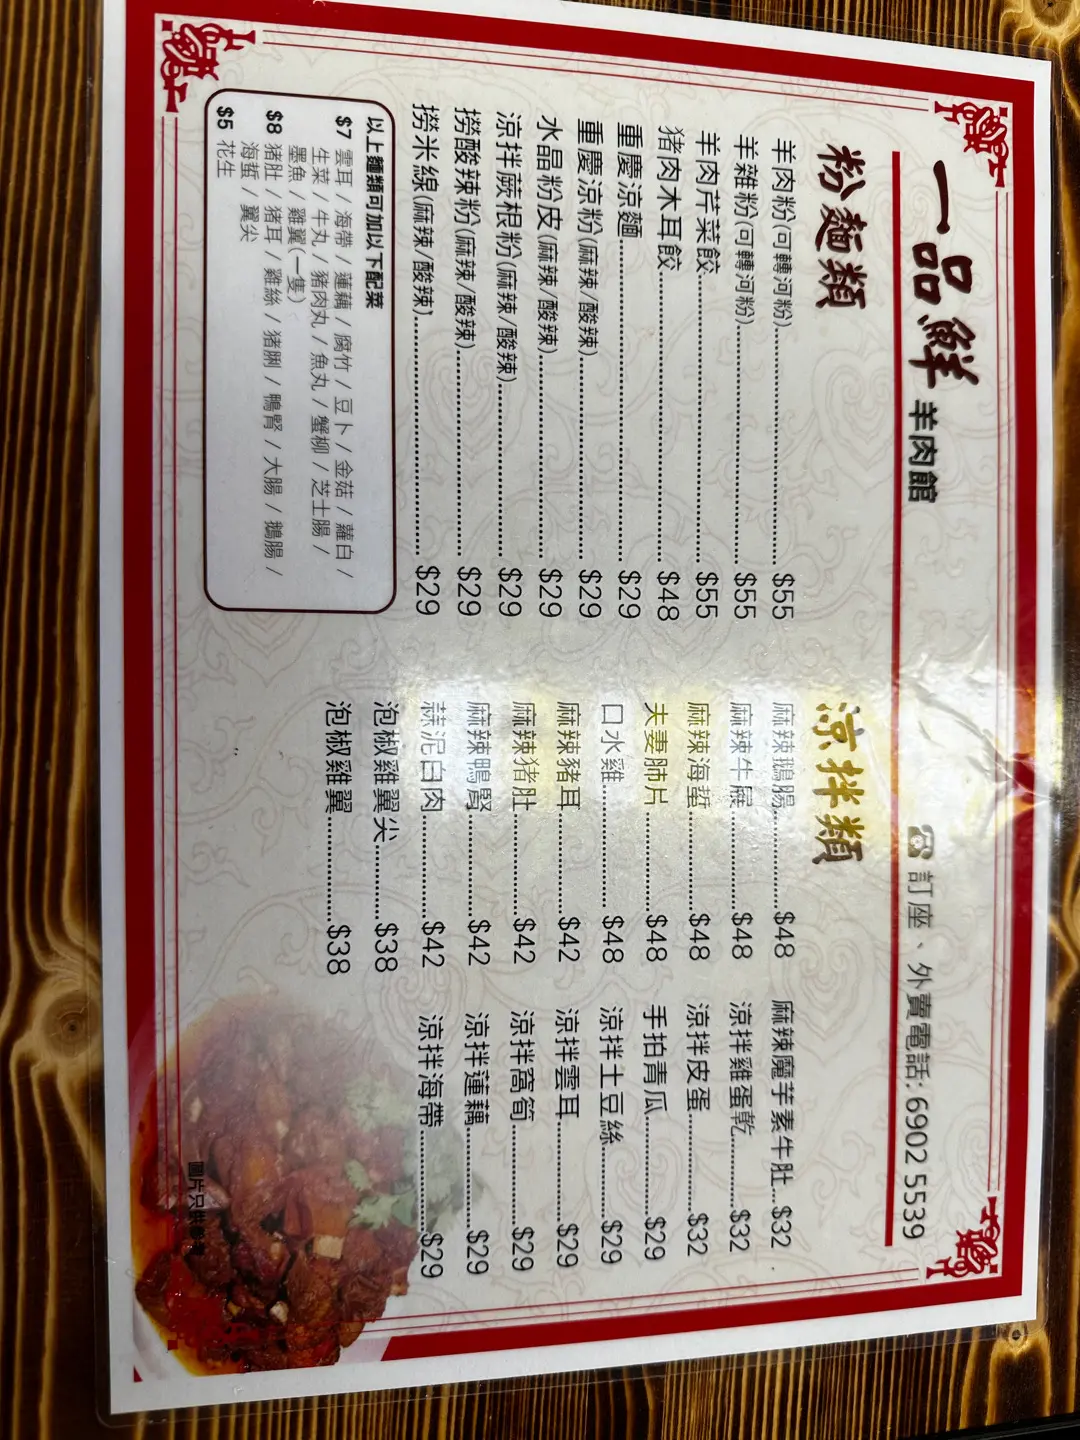 一品鮮 羊肉館
☎訂座、外賣電話:6902 5539
粉麵類
羊肉粉(可轉河粉)............$55
羊雜粉(可轉河粉)............$55
羊肉芹菜餃............$55
猪肉木耳餃............$48
重慶涼麵............$29
重慶涼粉(麻辣/酸辣)............$29
水晶粉皮(麻辣/酸辣)............$29
涼拌蕨根粉(麻辣/酸辣)............$29
撈酸辣粉(麻辣/酸辣)............$29
撈米線(麻辣/酸辣)............$29
以上麵類可加以下配菜
$7 雲耳/海帶/蓮藕/腐竹/豆卜/金菇/蘿白/
生菜/牛丸/豬肉丸/魚丸/蟹柳/芝士腸/
墨魚/雞翼(一隻)
$8 猪肚/猪耳/雞絲/猪脷/鴨腎/大腸/鵝腸/
海蜇/翼尖
$5 花生
涼拌類
麻辣鵝腸............$48
麻辣牛展............$48
麻辣海蜇............$48
夫妻肺片............$48
口水雞............$48
麻辣豬耳............$42
麻辣猪肚............$42
麻辣鴨腎............$42
蒜泥白肉............$42
泡椒雞翼尖............$38
泡椒雞翼............$38
麻辣魔芋素牛肚...$32
涼拌雞蛋乾............$32
涼拌皮蛋............$32
手拍青瓜............$29
涼拌土豆絲............$29
涼拌雲耳............$29
涼拌窩筍............$29
涼拌蓮藕............$29
涼拌海帶............$29
圖片只供參考